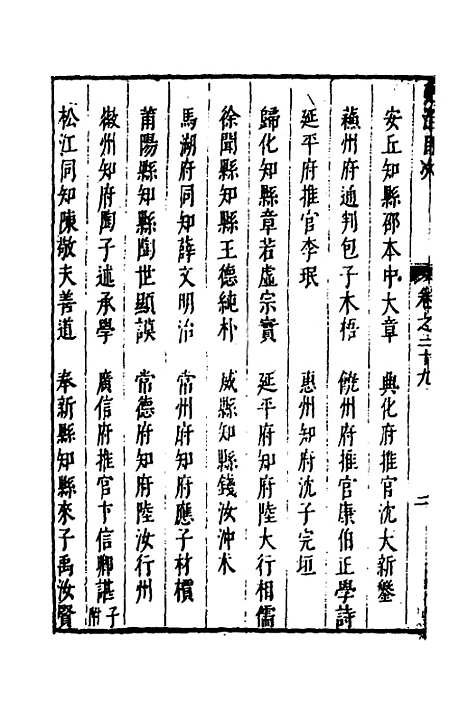 卷之二十九
二
安丘知縣邵本中大章　興化府推官沈大新鑿
蘓州府通判包子木梧　饒州府推官康伯正學詩
延平府推官李珉　惠州知府沈子完垣
歸化知縣章若虛宗實　延平府知府陸大行相儒
徐聞縣知縣王德純朴　威縣知縣錢汝沖木
馬湖府同知薛文明治　常州府知府應子材檟
莆陽縣知縣陶世顯謨　常德府知府陸汝行州
徽州知府陶子述承學　廣信府推官卞信卿諶子附
松江同知陳敬夫善道　奉新縣知縣來子禹汝賢